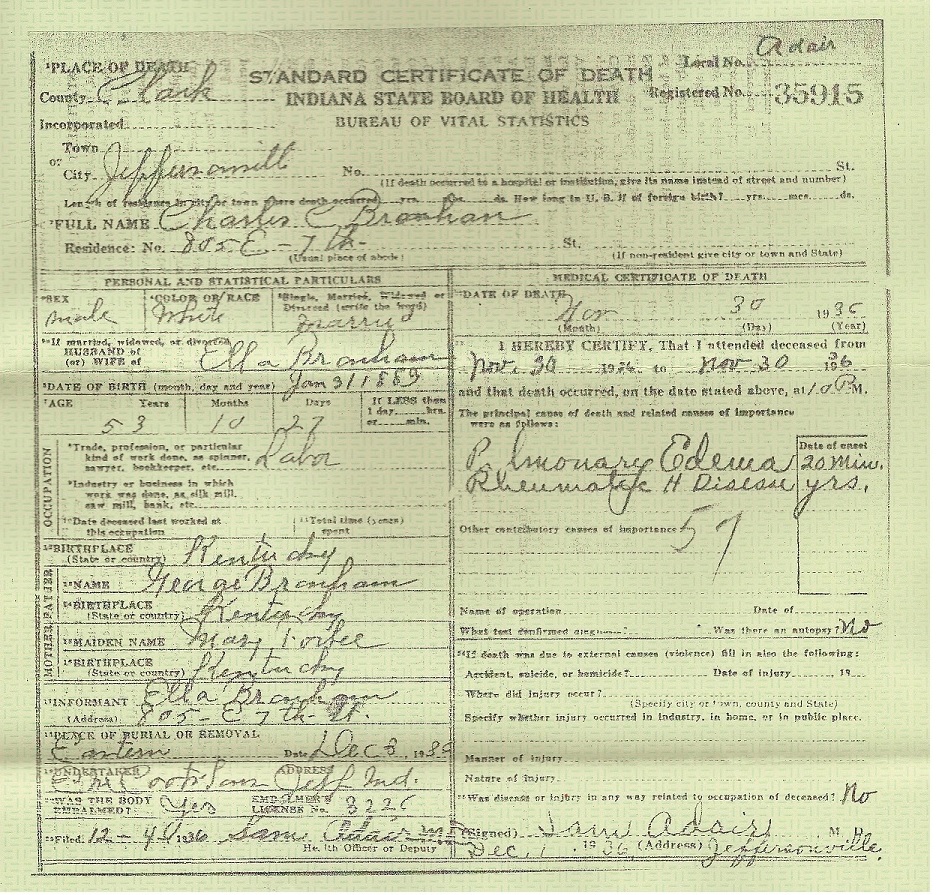 Adair
¹PLACE OF DEATH
STANDARD CERTIFICATE OF DEATH
Local No.
County Clark
INDIANA STATE BOARD OF HEALTH
Registered No. 35915
Incorporated
BUREAU OF VITAL STATISTICS
Town
or
City Jeffersonvill No. St.
(If death occurred in a hospital or institution, give its name instead of street and number)
Length of residence in city or town where death occurred yrs. mos. ds. How long in U. S. if of foreign birth? yrs. mos. ds.
²FULL NAME Charles C Branham
Residence: No. 805 E - 7th - St.
(Usual place of abode) (If non-resident give city or town and State)
PERSONAL AND STATISTICAL PARTICULARS
³SEX male
⁴COLOR OR RACE White
⁵Single, Married, Widowed or Divorced (write the word) married
If married, widowed, or divorced
HUSBAND of
(or) WIFE of Ella Branham
⁶DATE OF BIRTH (month, day and year) Jan 31 1883
⁷AGE Years Months Days If LESS than
1 day hrs.
or min.
53 10 27
OCCUPATION
⁸Trade, profession, or particular
kind of work done, as spinner,
sawyer, bookkeeper, etc. Labor
⁹Industry or business in which
work was done, as silk mill,
saw mill, bank, etc.
¹⁰Date deceased last worked at
this occupation
¹¹Total time (years)
spent
¹²BIRTHPLACE Kentucky
(State or country)
FATHER
¹³NAME George Branham
¹⁴BIRTHPLACE
(State or country) Kentucky
MOTHER
¹⁵MAIDEN NAME Mary
¹⁶BIRTHPLACE
(State or country) Kentucky
¹⁷INFORMANT Ella Branham
(Address) 805 - E 7th St.
¹⁸PLACE OF BURIAL OR REMOVAL
Eastern Date Dec 3, 1936
¹⁹UNDERTAKER ADDRESS
Jeff Ind.
WAS THE BODY
EMBALMED? Yes
EMBALMER'S
LICENSE No. 3226
²⁰Filed, 12 - 4 1936 Sam Adair M.D.
Health Officer or Deputy
MEDICAL CERTIFICATE OF DEATH
²¹DATE OF DEATH Nov 30 1936
(Month) (Day) (Year)
²² I HEREBY CERTIFY, That I attended deceased from
Nov. 30 1936 to Nov 30 1936
and that death occurred, on the date stated above, at 1.0 P M.
The principal cause of death and related causes of importance
were as follows:
Date of onset
Pulmonary Edema 20 Min.
Rheumatic H Disease yrs.
Other contributory causes of importance
57
Name of operation Date of
What test confirmed diagnosis? Was there an autopsy? No
²³If death was due to external causes (violence) fill in also the following:
Accident, suicide, or homicide? Date of injury 19
Where did injury occur?
(Specify city or town, county and State)
Specify whether injury occurred in industry, in home, or in public place.
Manner of injury
Nature of injury
²⁴Was disease or injury in any way related to occupation of deceased? No
(Signed) Sam Adair M. D.
Dec. 1 1936 (Address) Jeffersonville.